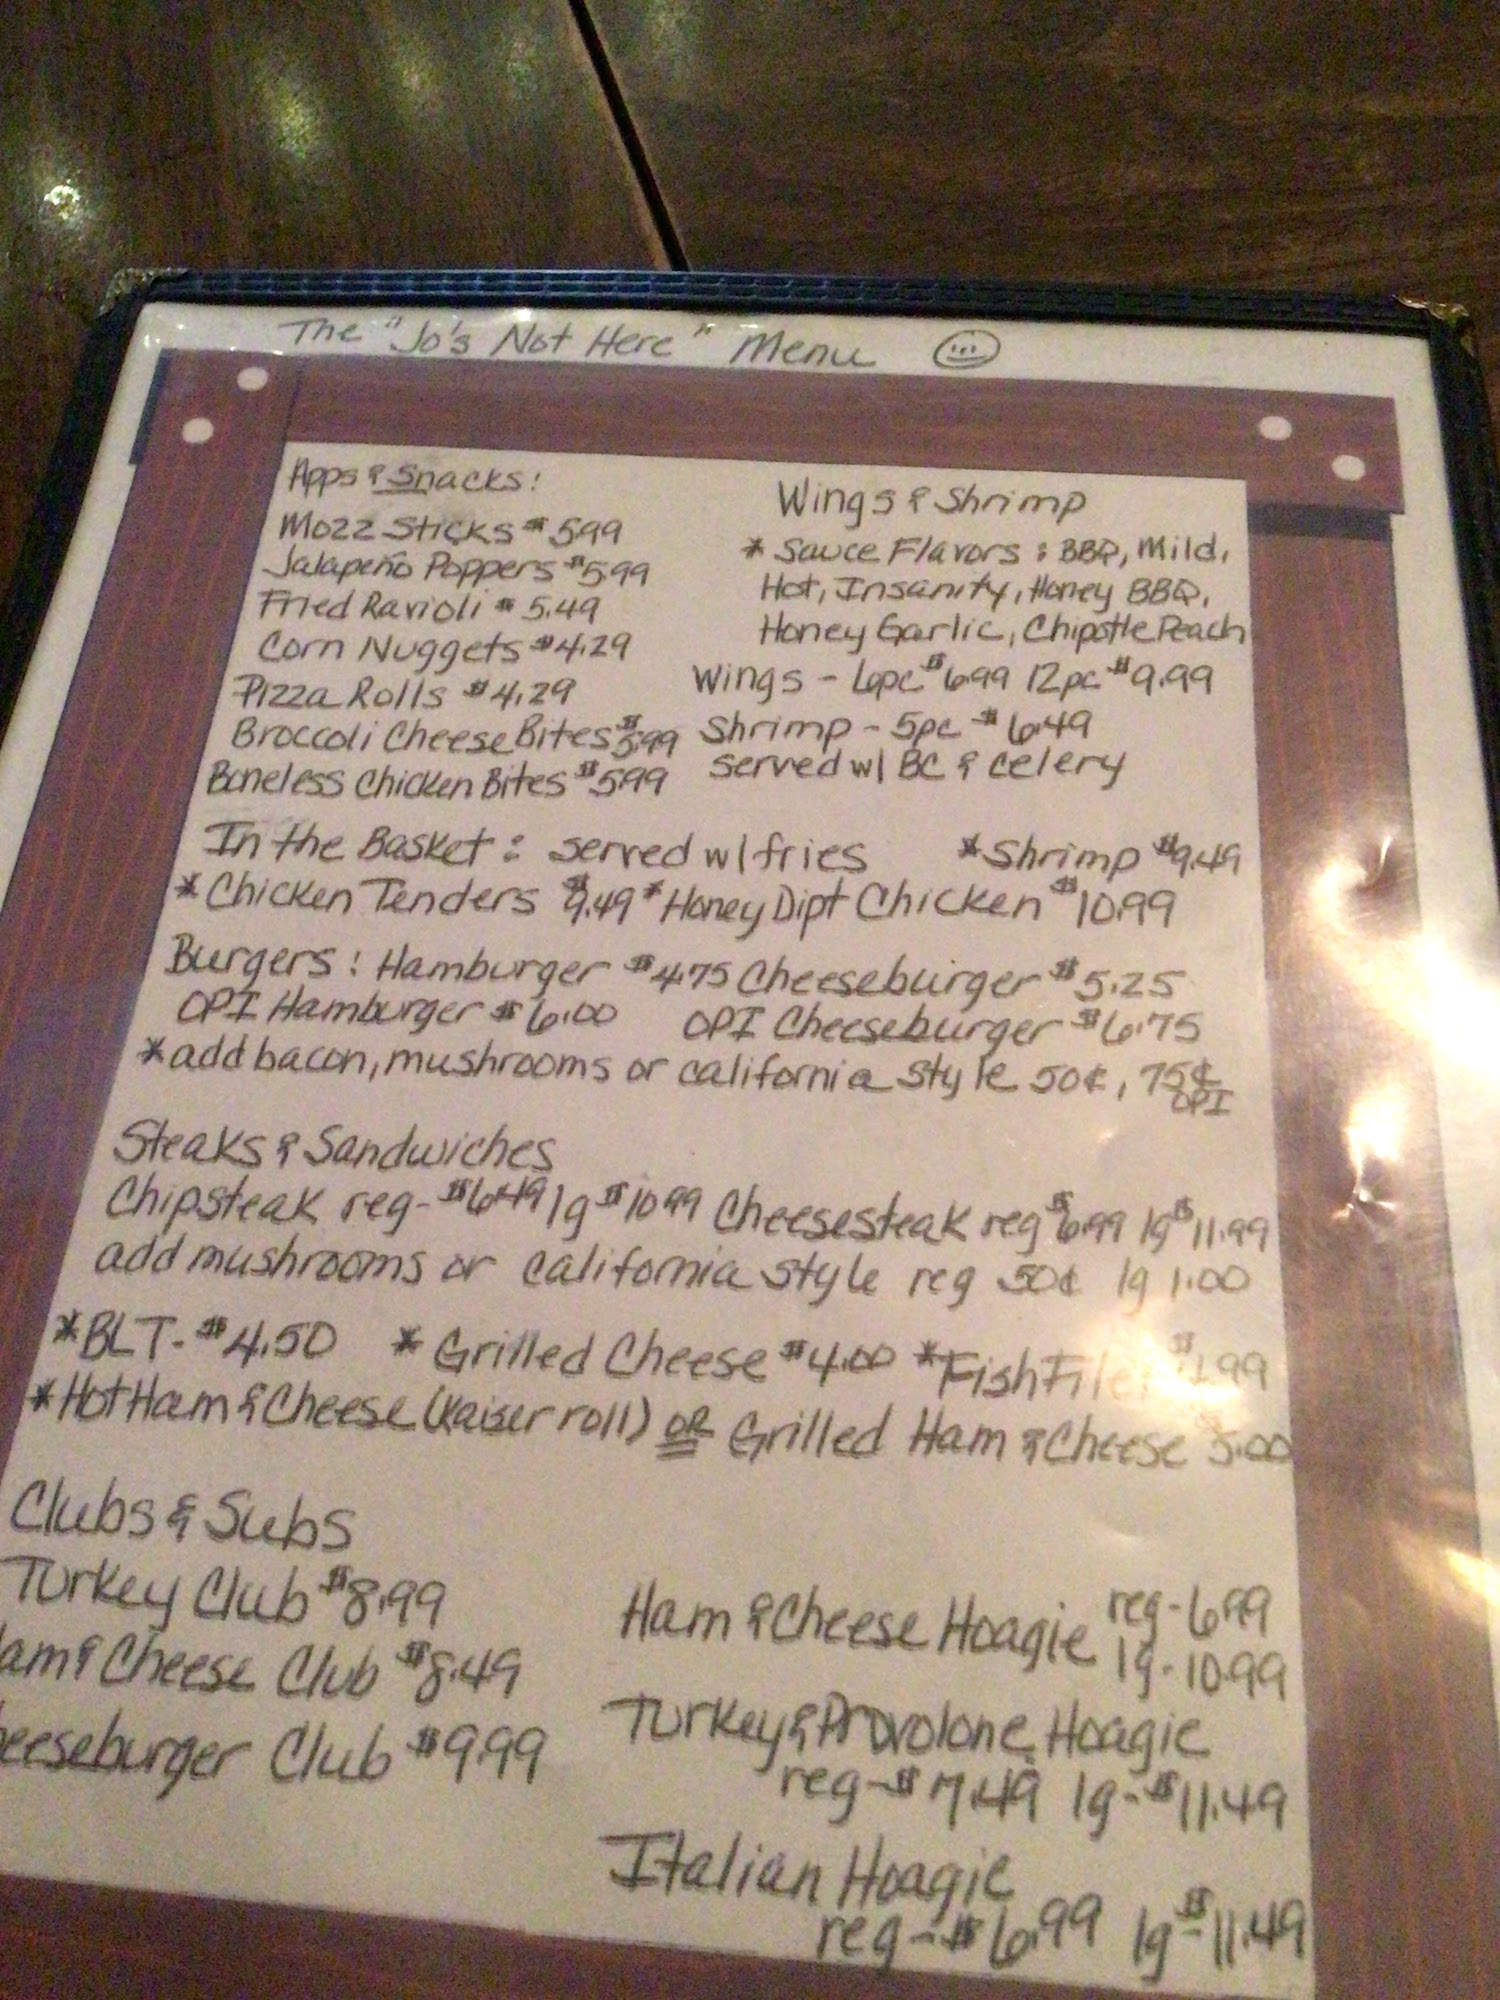 The "Jo's Not Here" Menu
Apps & Snacks:
Mozz Sticks $5.99
Jalapeño Poppers $5.99
Fried Ravioli $5.49
Corn Nuggets $4.29
Pizza Rolls $4.29
Broccoli Cheese Bites $5.99
Boneless Chicken Bites $5.99
Wings & Shrimp
* Sauce Flavors: BBQ, Mild,
Hot, Insanity, Honey BBQ,
Honey Garlic, Chipotle Peach
Wings - 6pc $6.99 12pc $9.99
Shrimp - 5pc $6.49
served w/ BC & celery
In the Basket: served w/ fries *Shrimp $9.49
*Chicken Tenders $9.49 *Honey Dipt Chicken $10.99
Burgers: Hamburger $4.75 Cheeseburger $5.25
OPI Hamburger $6.00 OPI Cheeseburger $6.75
*add bacon, mushrooms or california style 50¢, 75¢
OPI
Steaks & Sandwiches
Chipsteak reg-$6.49 lg $10.99 Cheesesteak reg $6.99 lg $11.99
add mushrooms or california style reg 50¢ lg 1.00
*BLT-$4.50 *Grilled Cheese $4.00 *Fish
*Hot Ham & Cheese (Kaiser roll) OR Grilled Ham & Cheese 5.00
Clubs & Subs
Turkey Club $8.99
am & Cheese Club $8.49
eeseburger Club $9.99
Ham & Cheese Hoagie reg-6.99
lg-10.99
Turkey & Provolone Hoagie
reg-$7.49 lg-$11.49
Italian Hoagie
reg-$6.99 lg-$11.49